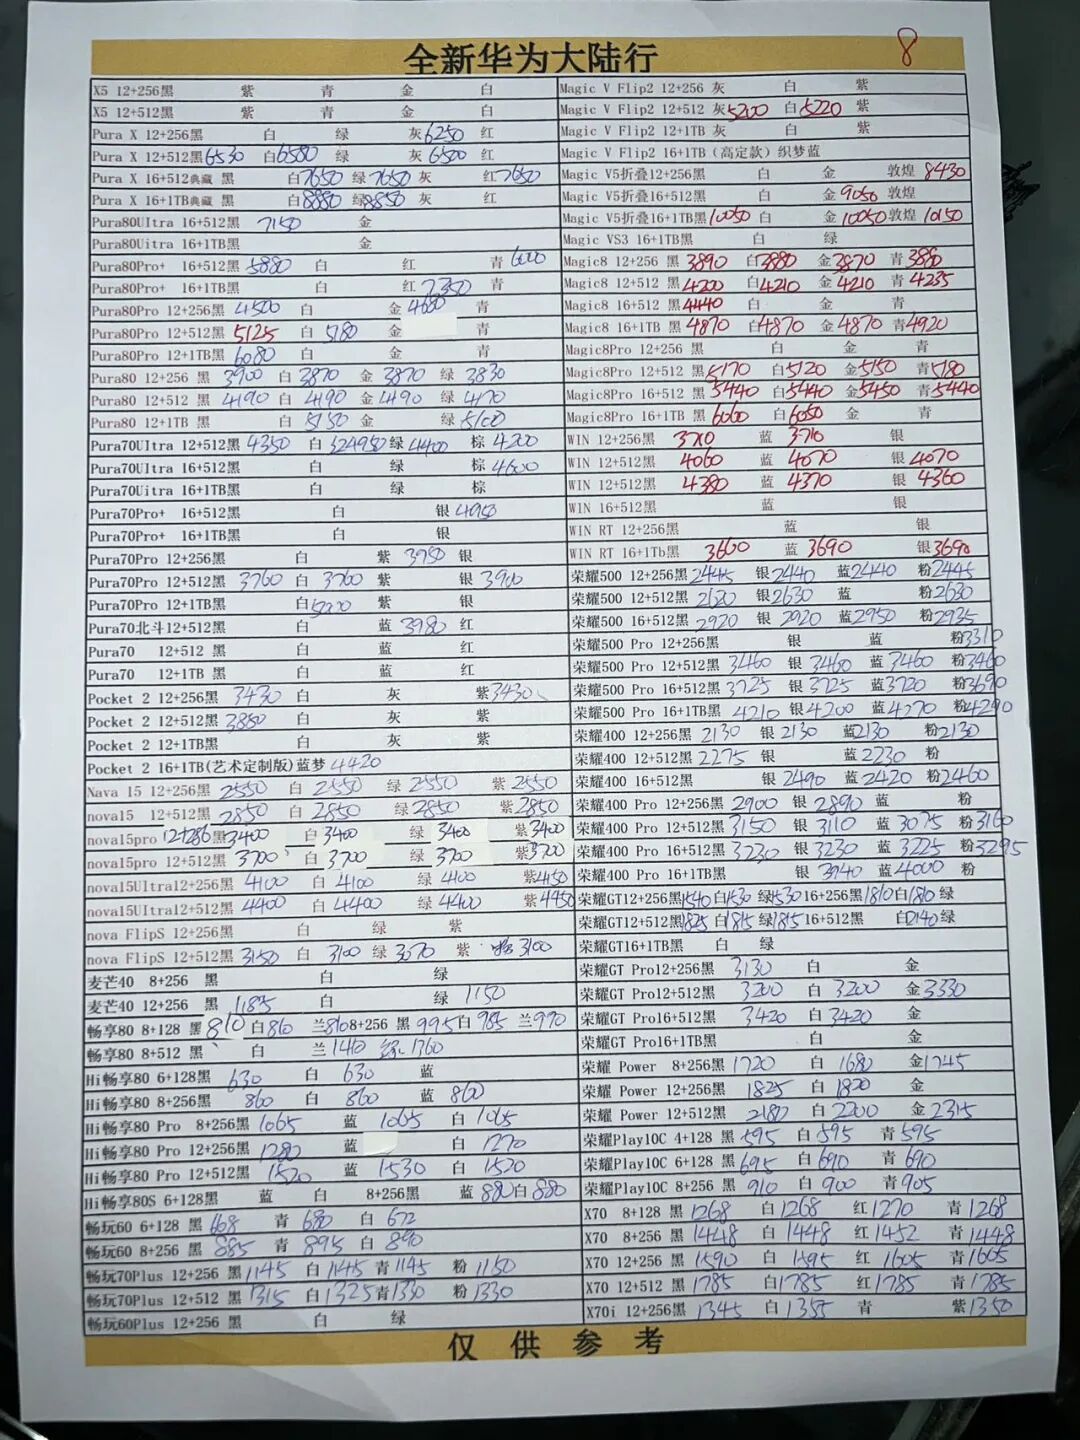 8
全新华为大陆行
X5 12+256黑 紫 青 金 白
X5 12+512黑 紫 青 金 白
Pura X 12+256黑 白 绿 灰6250 红
Pura X 12+512黑6530 白6580 绿 灰6500 红
Pura X 16+512典藏 黑 白7650 绿7650 灰 红7650
Pura X 16+1TB典藏 黑 白8880 绿8850 灰 红
Pura80UItra 16+512黑 7150 金
Pura80Uitra 16+1TB黑 金
Pura80Pro+ 16+512黑 5880 白 红 青6000
Pura80Pro+ 16+1TB黑 白 红7350 青
Pura80Pro 12+256黑 4500 金4680 青
Pura80Pro 12+512黑 5125 白 5180 青
Pura80Pro 12+1TB黑 6080 白 金 青
Pura80 12+256 黑 3900 白 3870 金 3870 绿 3830
Pura80 12+512 黑 4190 白 4190 金 4190 绿 4170
Pura80 12+1TB 黑 白 5150 金 绿 5100
Pura70UItra 12+512黑 4350 白 绿 4400 棕 4200
Pura70UItra 16+512黑 白 绿 棕 4600
Pura70Uitra 16+1TB黑 白 绿 棕
Pura70Pro+ 16+512黑 白 银 4950
Pura70Pro+ 16+1TB黑 白 银
Pura70Pro 12+256黑 白 紫 3750 银
Pura70Pro 12+512黑 3760 白 3760 紫 银 3900
Pura70Pro 12+1TB黑 白 紫 银
Pura70北斗12+512黑 白 蓝 3980 红
Pura70 12+512 黑 白 蓝 红
Pura70 12+1TB 黑 白 蓝 红
Pocket 2 12+256黑 3430 白 灰 紫3430
Pocket 2 12+512黑 3850 白 灰 紫
Pocket 2 12+1TB黑 白 灰 紫
Pocket 2 16+1TB(艺术定制版)蓝梦 4420
Nava 15 12+256黑 2550 白 2550 绿 2550 紫 2550
nova15 12+512黑 2850 白 2850 绿 2850 紫 2850
nova15pro 12+256黑3400 白 3400 绿 3400 紫3400
nova15pro 12+512黑 3700 白 3700 绿 3700 紫3700
nova15UItra12+256黑 4100 白 4100 绿 4100 紫4150
nova15UItra12+512黑 4400 白 4400 绿 4400 紫4450
nova FlipS 12+256黑 白 绿 紫
nova FlipS 12+512黑 3150 白 3100 绿 3070 紫 3100
麦芒40 8+256 黑 白 绿
麦芒40 12+256 黑 1185 白 绿 1150
畅享80 8+128 黑 810 白810 兰810 8+256 黑 995 白 985 兰990
畅享80 8+512 黑 白 兰1410 绿1760
Hi畅享80 6+128黑 630 白 630 蓝
Hi畅享80 8+256黑 860 白 860 蓝 860
Hi畅享80 Pro 8+256黑 1065 蓝 1065 白 1065
Hi畅享80 Pro 12+256黑 1280 蓝 白 1270
Hi畅享80 Pro 12+512黑 1520 蓝 1530 白 1520
Hi畅享80S 6+128黑 蓝 白 8+256黑 蓝 880 白 880
畅玩60 6+128 黑 668 青 680 白 672
畅玩60 8+256 黑 885 青 895 白 890
畅玩70Plus 12+256 黑1145 白 1145 青 1145 粉 1150
畅玩70Plus 12+512 黑 1315 白 1325 青1330 粉 1330
畅玩60Plus 12+256 黑 白 绿
Magic V Flip2 12+256 灰 白 紫
Magic V Flip2 12+512 灰5200 白5220 紫
Magic V Flip2 12+1TB 灰 白 紫
Magic V Flip2 16+1TB(高定款)织梦蓝
Magic V5折叠12+256黑 白 金 敦煌 8430
Magic V5折叠16+512黑 白 金 9050 敦煌
Magic V5折叠16+1TB黑10050 白 金 10050 敦煌 10150
Magic VS3 16+1TB黑 白 绿
Magic8 12+256 黑 3890 白3880 金3870 青 3880
Magic8 12+512 黑 4200 白4210 金 4210 青 4235
Magic8 16+512 黑4440 白 金 青
Magic8 16+1TB 黑 4870 白4870 金 4870 青4920
Magic8Pro 12+256 黑 白 金 青
Magic8Pro 12+512 黑5170 白5120 金5150 青5180
Magic8Pro 16+512 黑 5440 白5440 金5450 青5440
Magic8Pro 16+1TB 黑 6060 白6050 金 青
WIN 12+256黑 3710 蓝 3710 银
WIN 12+512黑 4060 蓝 4070 银 4070
WIN 12+512黑 4380 蓝 4370 银 4360
WIN 16+512黑 蓝 银
WIN RT 12+256黑 蓝 银
WIN RT 16+1Tb黑 3660 蓝 3690 银3690
荣耀500 12+256黑2445 银2440 蓝2440 粉2445
荣耀500 12+512黑 2620 银2630 蓝 粉2630
荣耀500 16+512黑 2920 银 2920 蓝2950 粉2935
荣耀500 Pro 12+256黑 银 蓝 粉3310
荣耀500 Pro 12+512黑 3460 银 3460 蓝 3460 粉3460
荣耀500 Pro 16+512黑 3725 银 3725 蓝3720 粉3690
荣耀500 Pro 16+1TB黑 4210 银 4200 蓝 4270 粉4290
荣耀400 12+256黑 2130 银 2130 蓝2130 粉2130
荣耀400 12+512黑 2275 银 蓝 2230 粉
荣耀400 16+512黑 银 2490 蓝 2420 粉 2460
荣耀400 Pro 12+256黑 2900 银 2890 蓝 粉
荣耀400 Pro 12+512黑 3150 银 3110 蓝 3075 粉 3160
荣耀400 Pro 16+512黑 3230 银 3230 蓝 3225 粉3295
荣耀400 Pro 16+1TB黑 银 3940 蓝4000 粉
荣耀GT12+256黑1540 白1530 绿1530 16+256黑1810 白1810 绿
荣耀GT12+512黑1825 白1815 绿1815 16+512黑 白2140 绿
荣耀GT16+1TB黑 白 绿
荣耀GT Pro12+256黑 3130 白 金
荣耀GT Pro12+512黑 3200 白 3200 金3330
荣耀GT Pro16+512黑 3420 白 3420 金
荣耀GT Pro16+1TB黑 白 金
荣耀 Power 8+256黑 1720 白 1680 金1745
荣耀 Power 12+256黑 1825 白 1820 金
荣耀 Power 12+512黑 2180 白 2200 金 2315
荣耀Play10C 4+128 黑 595 白 595 青 595
荣耀Play10C 6+128 黑 695 白 690 青 690
荣耀Play10C 8+256 黑 910 白 900 青 905
X70 8+128 黑 1268 白 1268 红 1270 青 1268
X70 8+256 黑 1448 白 1448 红 1452 青 1448
X70 12+256 黑 1590 白 1595 红 1605 青 1605
X70 12+512 黑 1785 白1785 红 1785 青 1785
X70i 12+256黑 1345 白 1355 青 紫1350
仅供参考